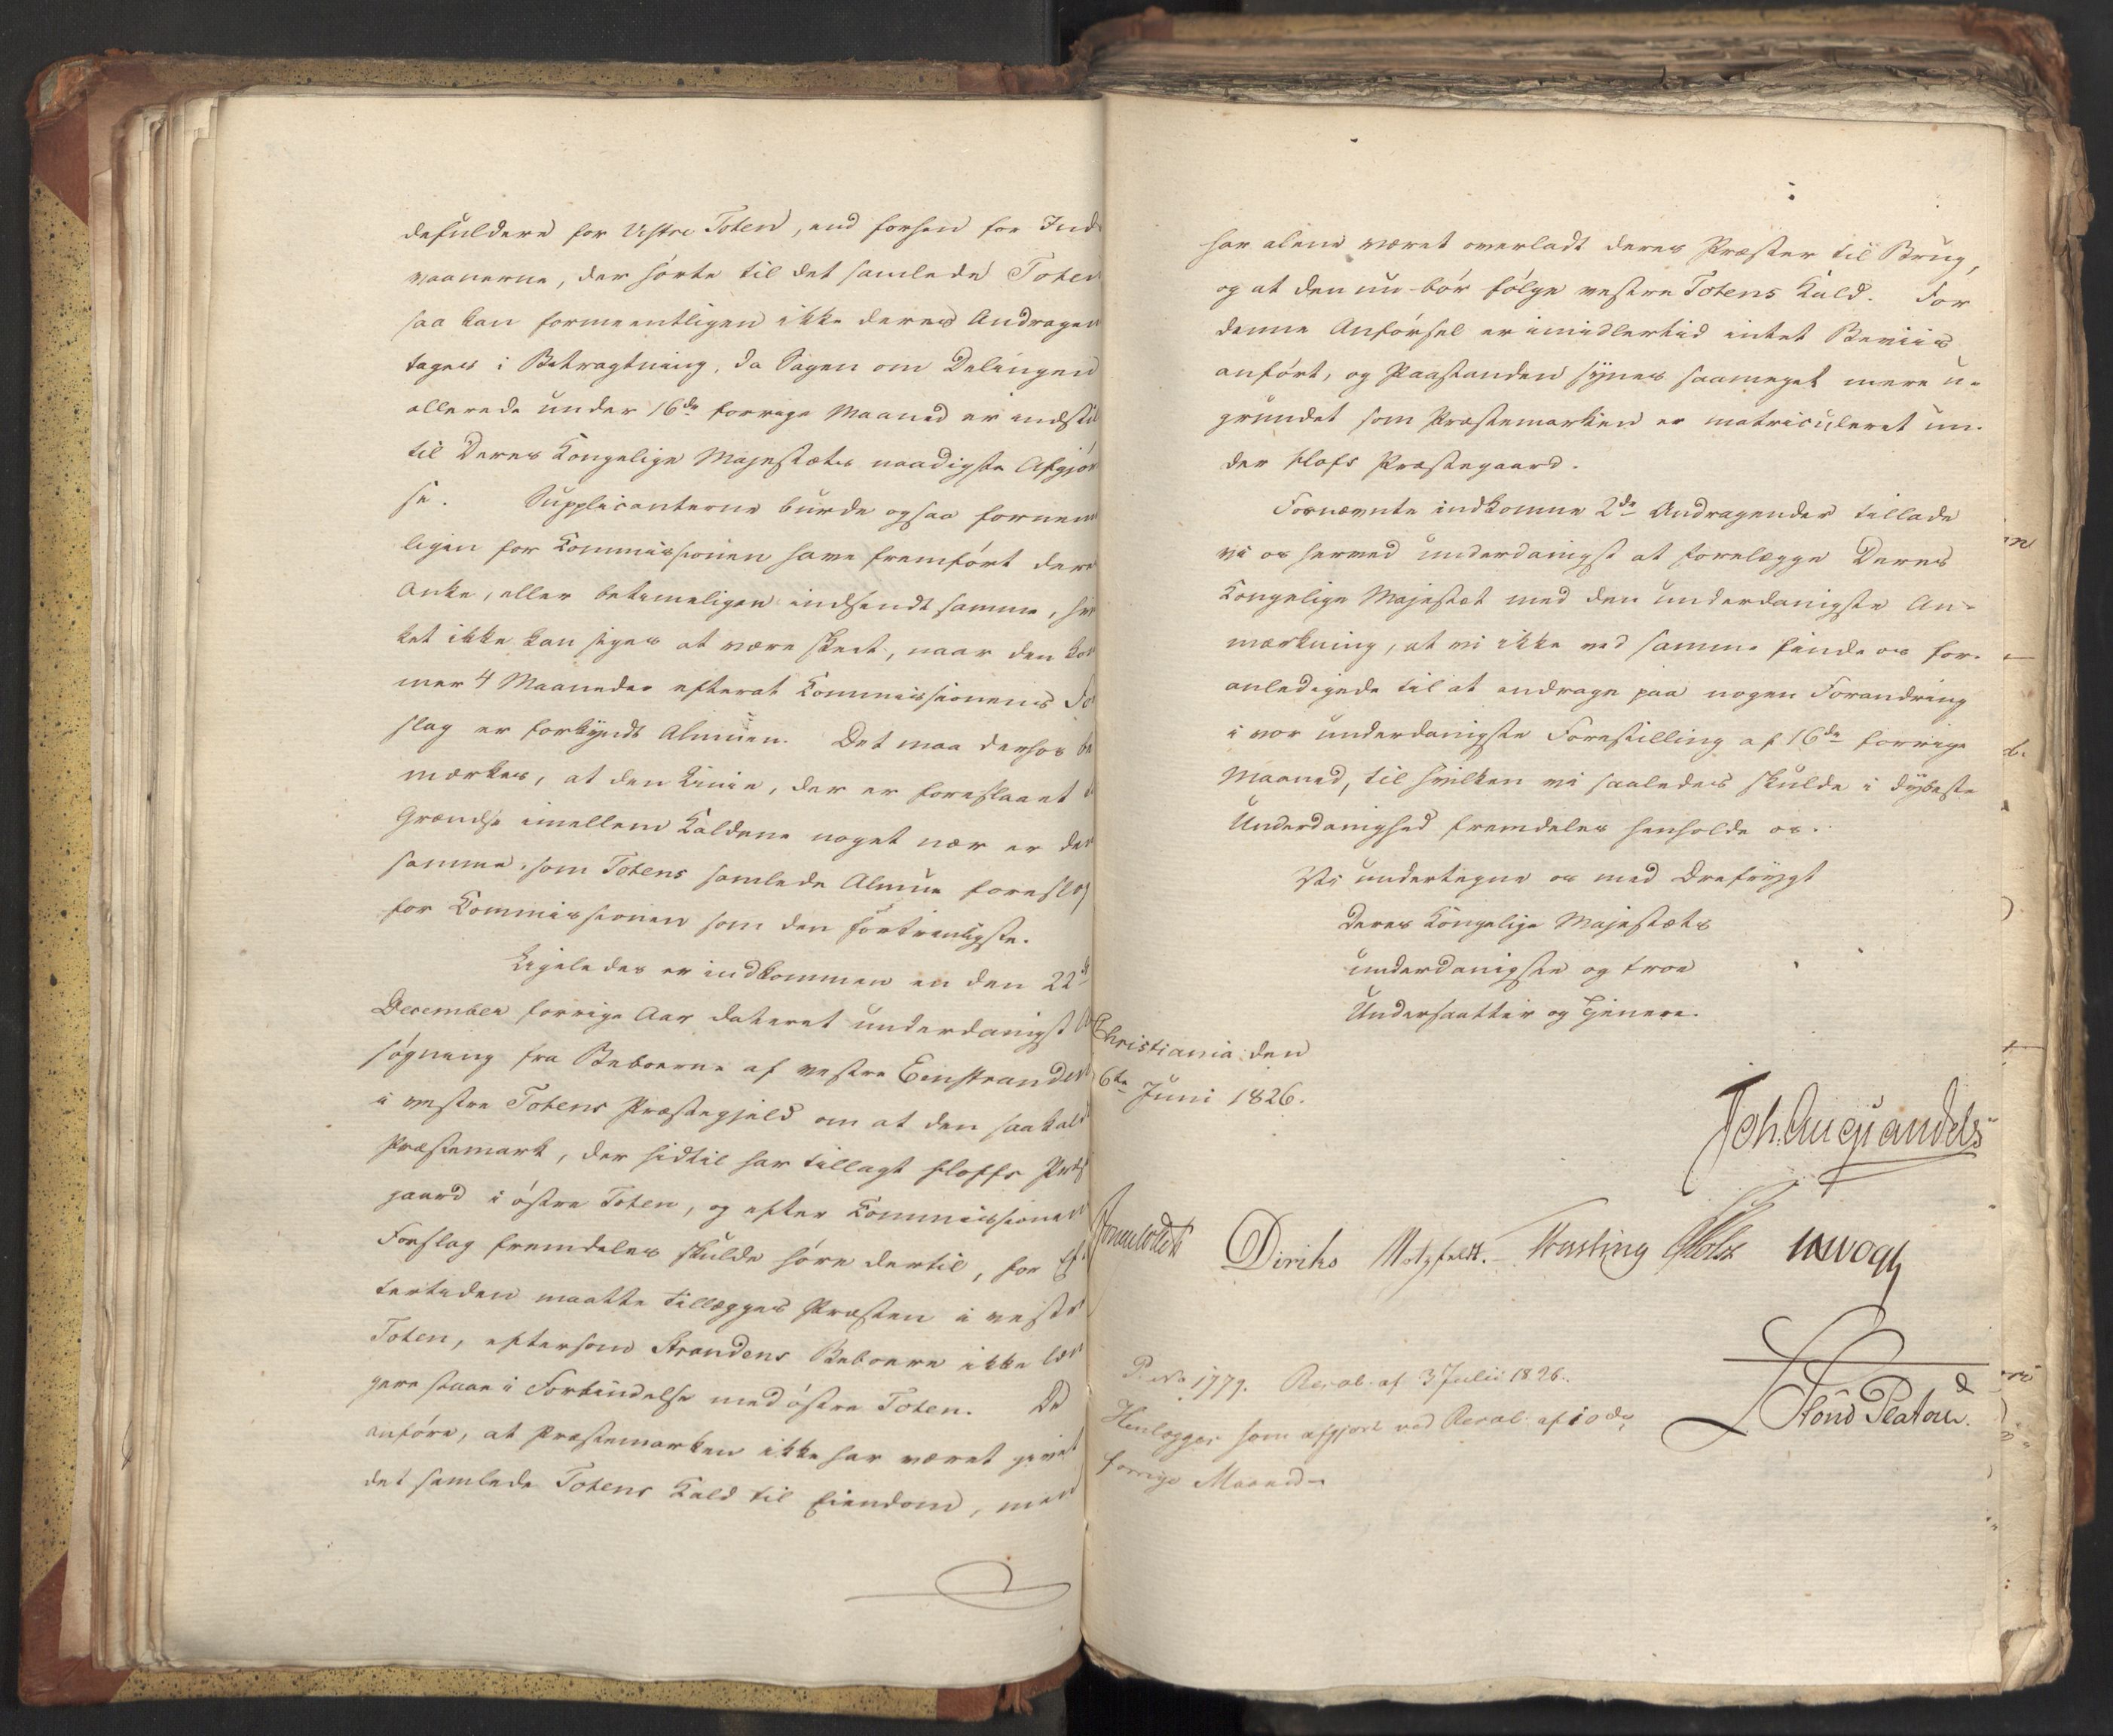 defuldere for Vestre Toten, end forhen for Ind-
vaanerne, der hørte til det samlede Toten
saa kan formeentligen ikke deres Andragen
tages i Betragtning, da Sagen om Delingen
allerede under 16de forrige Maaned er indstil
til Deres Kongelige Majestæts naadigste Afgjør
se. Supplicanterne burde ogsaa fornem
ligen for Commissionen have fremført dere
Anke, eller betimeligen indsendt samme, hvil
ket ikke kan siges at være skeet, naar den kom
mer 4 Maaneder efterat Commissionens For
slag er forkyndt Almuen. Det maa derhos be
mærkes, at den Linie, der er foreslaaet
Grændse imellem Kaldene noget nær er den
samme, som Totens samlede Almue foreslog
for Commissionen som den fortrinligste.
Ligeledes er indkommen en den 22de
December forrige Aar dateret underdanigst
søgning fra Beboerne af vestre Einstranden
i vestre Totens Præstegjeld om at den saakald
Præstemark, der hidtil har tillagt Hoffs Præst
gaard i østre Toten, og efter Commissionens
Forslag fremdeles skulde høre dertil, for Ef-
tertiden maatte tillægges Præsten i vestre
Toten, eftersom Strandens Beboere ikke læn
gere staae i Forbindelse med østre Toten. De
anføre, at Præstemarken ikke har været givet
det samlede Totens Kald til Eiendom, men
har alene været overladt deres Præster til Brug,
og at den nu bør følge vestre Totens Kald. For
denne Anførsel er imidlertid intet Beviis
anført, og Paastanden synes saameget mere u-
grundet som Præstemarken er matriculeret un-
der Hofs Præstegaard.
Fornævnte indkomne 2de Andragender tillade
vi os herved underdanigst at forelægge Deres
Kongelige Majestæt med den underdanigste An-
mærkning, at vi ikke ved samme finde os for-
anledigede til at andrage paa nogen Forandring
i vor underdanigste Forestilling af 16de forrige
Maaned, til hvilken vi saaledes skulde i dybeste
Underdanighed fremdeles henholde os.
Vi undertegne os med Ærefrygt
Deres Kongelige Majestæts
underdanigste og troe
Undersaatter og Tjenere.
Christiania den
6te Juni 1826.
Joh. Aug. Sandels
Sommerhielm Diriks Motzfeldt. Treschow Holst Vogt
P. No 1779. Resol. af 3 Julii 1826.
Henlægges som afgjort ved Resol. af 10de
forrige Maaned.
Stoud Platou.